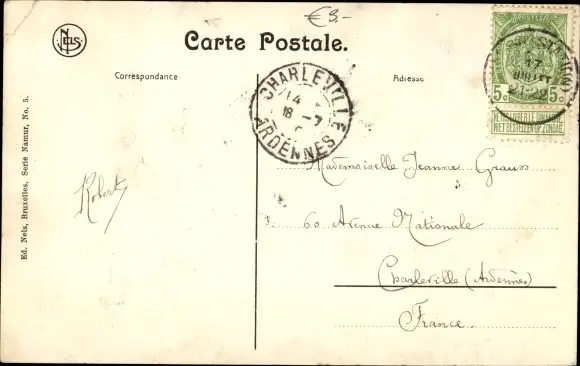 €3-
NELS
Carte Postale.
Correspondance
Adresse
CHARLEVILLE
14
18 -7
ARDENNES
17
JUILLET
21-22
5c 5c
NE PAS LIVRER LE DIMANCHE
NIET BESTELLEN OP ZONDAG
Mademoiselle Jeanne Grauss
60 Avenue Nationale
Charleville (Ardennes)
France
Robert
Ed. Nels, Bruxelles, Serie Namur, No. 5.